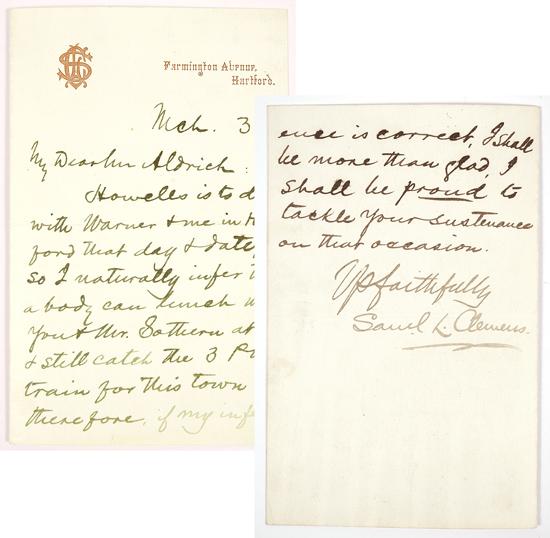 Farmington Avenue,
Hartford.
Mch. 3
My Dear Mr Aldrich:
Howells is to d
with Warner & me in H
ford that day & date,
so I naturally infer
a body can lunch w
you & Mr. Sothern at
& still catch the 3 P
train for this town
therefore, if my infe
ence is correct, I shall
be more than glad, I
shall be proud to
tackle your sustenance
on that occasion.
Yrs faithfully
Saml. L. Clemens.